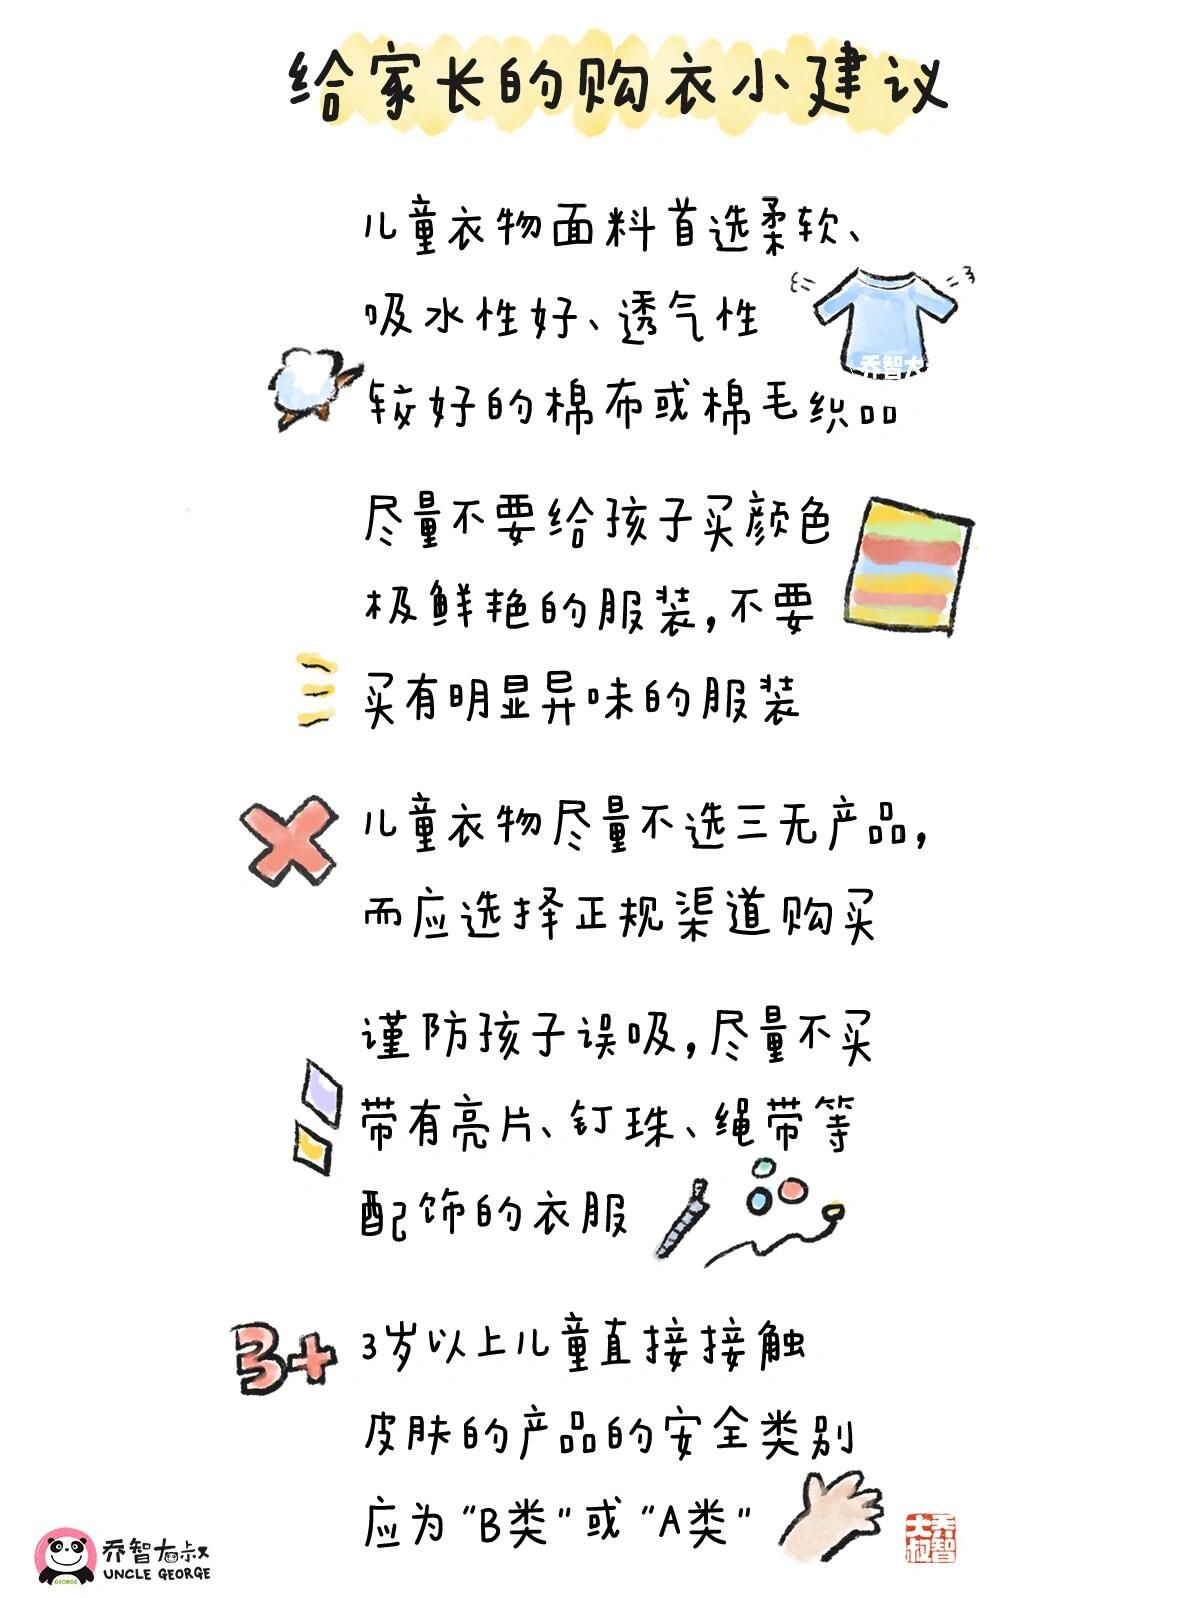 给家长的购衣小建议
儿童衣物面料首选柔软、
吸水性好、透气性
乔智大
较好的棉布或棉毛织品
尽量不要给孩子买颜色
极鲜艳的服装,不要
买有明显异味的服装
儿童衣物尽量不选三无产品,
而应选择正规渠道购买
谨防孩子误吸,尽量不买
带有亮片、钉珠、绳带等
配饰的衣服
3+
3岁以上儿童直接接触
皮肤的产品的安全类别
应为"B类"或"A类"
乔智大叔
GEORGE
乔智大叔
UNCLE GEORGE